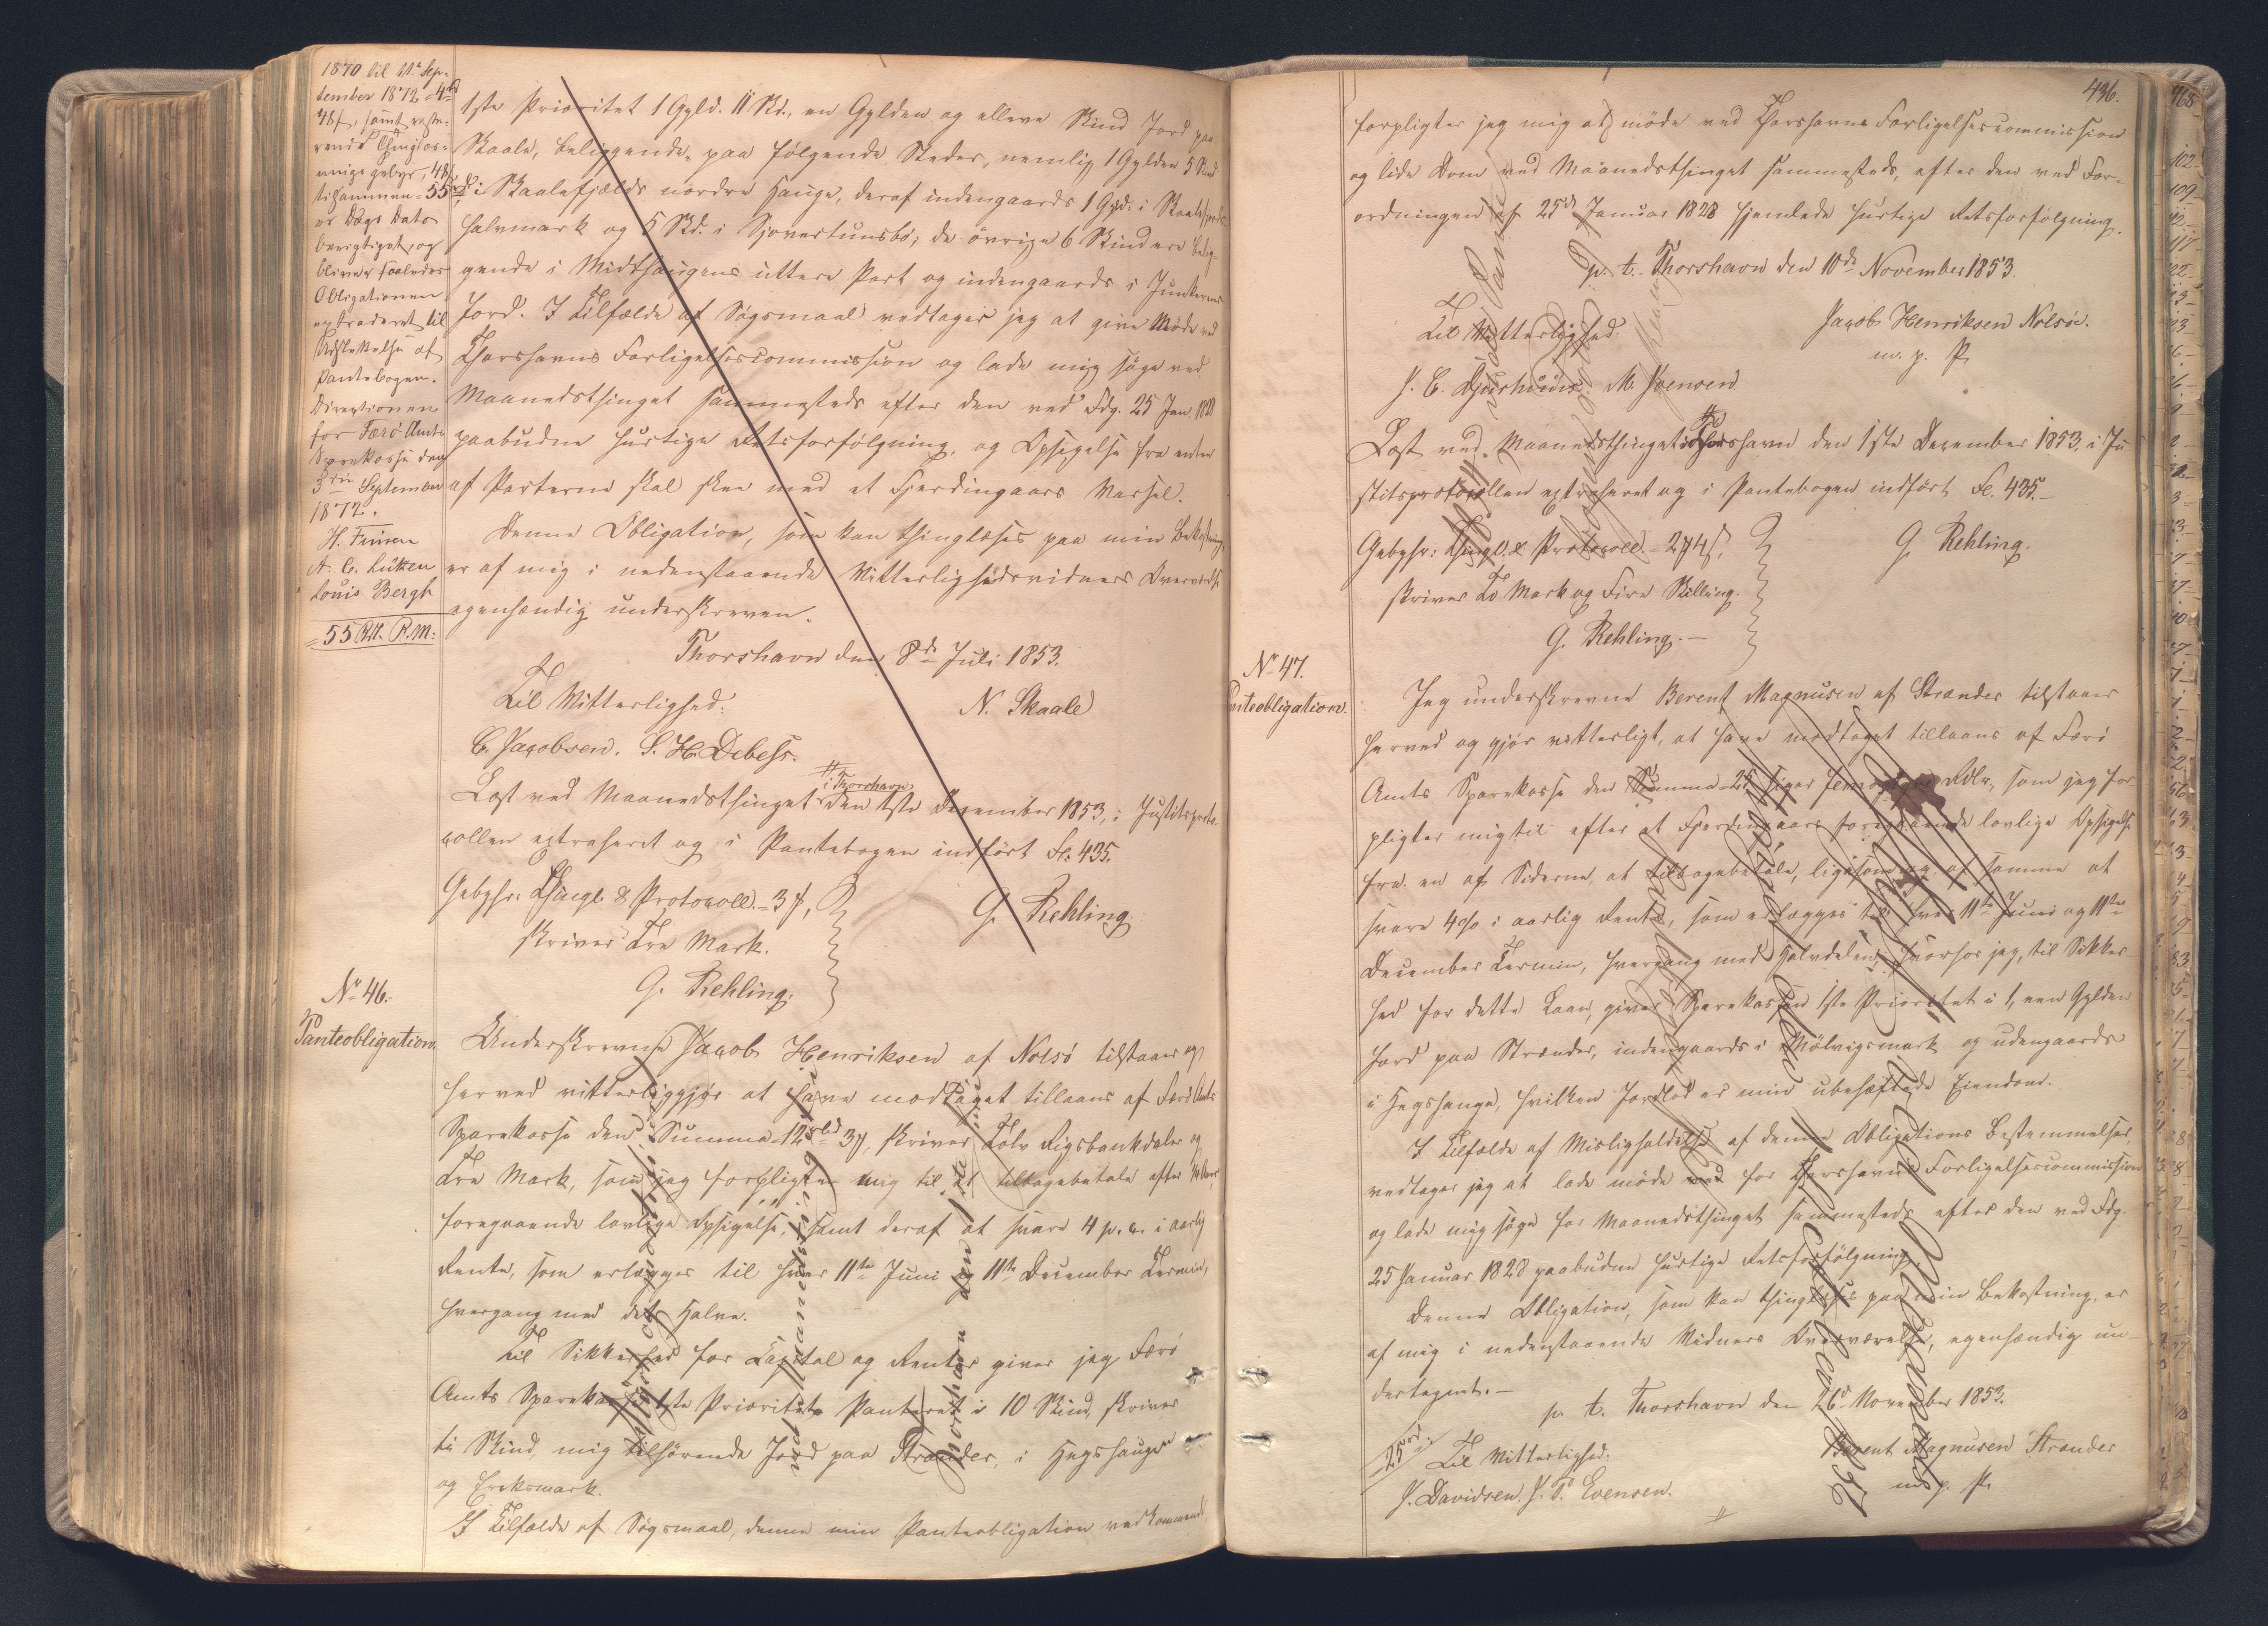 1870 til 11te Sep-
tember 1872 = 4 rd
48 s, samt
48 s
tilsammen = 55 rd
er Dags Dato
berigtiget, og
bliver saaledes
Obligationen
extraderet til
Udslettelse af
Pantebogen.
Directionen
for Færø Amts
Sparekasse den
3die September
1872.
H. Finsen
A. C. Lützen
Louis Bergh
= 55 Rd. R.M:
1ste Prioritet 1 Gyld. 11 Skd., en Gylden og elleve Skind Jord paa
Skaale, beliggende paa følgende Steder, nemlig 1 Gylden 5 Skind
i Skaalefjælds nordre Hauge, deraf indengaards 1 Gyld. i
halvmark og 5 Skd. i Sjovertunsbø; de øvrige 6 Skind ere belig-
gende i Midthaugens uttere Part og indengaards i Junkerens
Jord. I Tilfælde af Søgsmaal vedtager jeg at give Møde ved
Thorshavns Forligelsescommission og lade mig søge ved
Maanedsthinget sammesteds efter den ved Fdg. 25 Jan 1828
paabudne hurtige Retsforfølgning, og Opsigelse fra enten
af Parterne skal skee med et Fjerdingaars Varsel.
Denne Obligation, som kan thinglæses paa min Bekostning,
er af mig i nedenstaaende Vitterlighedsvidners Overværelse
egenhændig underskreven.
Thorshavn den 8de Juli 1853.
Til Vitterlighed: N. Skaale
C. Jacobsen. S. H. Debess.
i Thorshavn
Læst ved Maanedsthinget den 1ste December 1853, i Justitsproto-
collen extraheret og i Pantebogen indført Fol. 435.
Gebyhr: Thingl. & Protocoll. = 3 f,
skriver Tre Mark. G. Rehling.
G. Rehling.
No 46.
Panteobligation.
Underskrevne Jacob Henriksen af Nolsø tilstaaer og
herved vitterliggjør at have modtaget tillaans af Færø Amts
Sparekasse den Summa 12 rbd 3 f, skriver Tolv Rigsbankdaler og
Tre Mark, som jeg forpligter mig til at tilbagebetale efter
foregaaende lovlige Opsigelse, samt deraf at svare 4 p. c. i aarlig
Rente, som erlægges til hver 11te Juni og 11te December Termin,
hvergang med det Halve.
Til Sikkerhed for Capital og Renter giver jeg Færø
Amts Sparekasse 1ste Prioritets Panteret i 10 Skind, skriver
ti Skind mig tilhørende Jord paa Strænder, i Hegshaugen
og Ereksmark.
I Tilfælde af Søgsmaal, denne min Panteobligation vedkommende
436.
forpligter jeg mig at møde ved Thorshavns Forligelsescommission
og lide Dom ved Maanedsthinget sammesteds, efter den ved For-
ordningen af 25de Januar 1828 hjemlede hurtige Retsforfølgning.
p. t. Thorshavn den 10de November 1853.
Til Vitterlighed: Jacob Henriksen Nolsøe.
m. p. P.
J. C. Djurhuus. M. Joensen
Læst ved Maanedsthinget i Thorshavn den 1ste December 1853, i Ju-
stitsprotocollen extraheret og i Pantebogen indført Fol. 435.
Gebyhr: Thingl. & Protocoll. = 2 f 4 s, G. Rehling.
skriver To Mark og Fire Skilling.
G. Rehling.
No 47.
Panteobligation.
Jeg underskrevne Berent Magnusen af Strænder tilstaaer
herved og gjør vitterligt, at have modtaget tillaans af Færø
Amts Sparekasse den Summa 25 siger Rdlr, som jeg for-
pligter mig til efter et Fjerdingaars foregaaende lovlige Opsigelse
fra en af Siderne, at tilbagebetale, ligesom jeg af samme at
svare 4 % i aarlig Rente, som erlægges til hver 11te Juni og 11te
December Termin, hvergang med Halvdelen, hvorhos jeg, til Sikker-
hed for dette Laan, giver Sparekassen 1ste Prioritet i 1, een Gylden
Jord paa Strænder, indengaards i Mølvigsmark og udengaards
i Hegshauge, hvilken Jordlod er min ubehæftede Eiendom.
I Tilfælde af Misligholdelse af denne Obligations Bestemmelser,
vedtager jeg at lade møde for Thorshavns Forligelsescommission
og lade mig søge for Maanedsthinget sammesteds efter den ved Fdg.
25 Januar 1828 paabudne hurtige Retsforfølgning.
Denne Obligation, som kan thinglæses paa min Bekostning, er
af mig i nedenstaaende Vidners Overværelse, egenhændig un-
dertegnet.
p. t. Thorshavn den 26de November 1853.
25 rd. Til Vitterlighed: Berent Magnusen Strænder
J. Davidsen. J. P. Evensen. m. p. P.